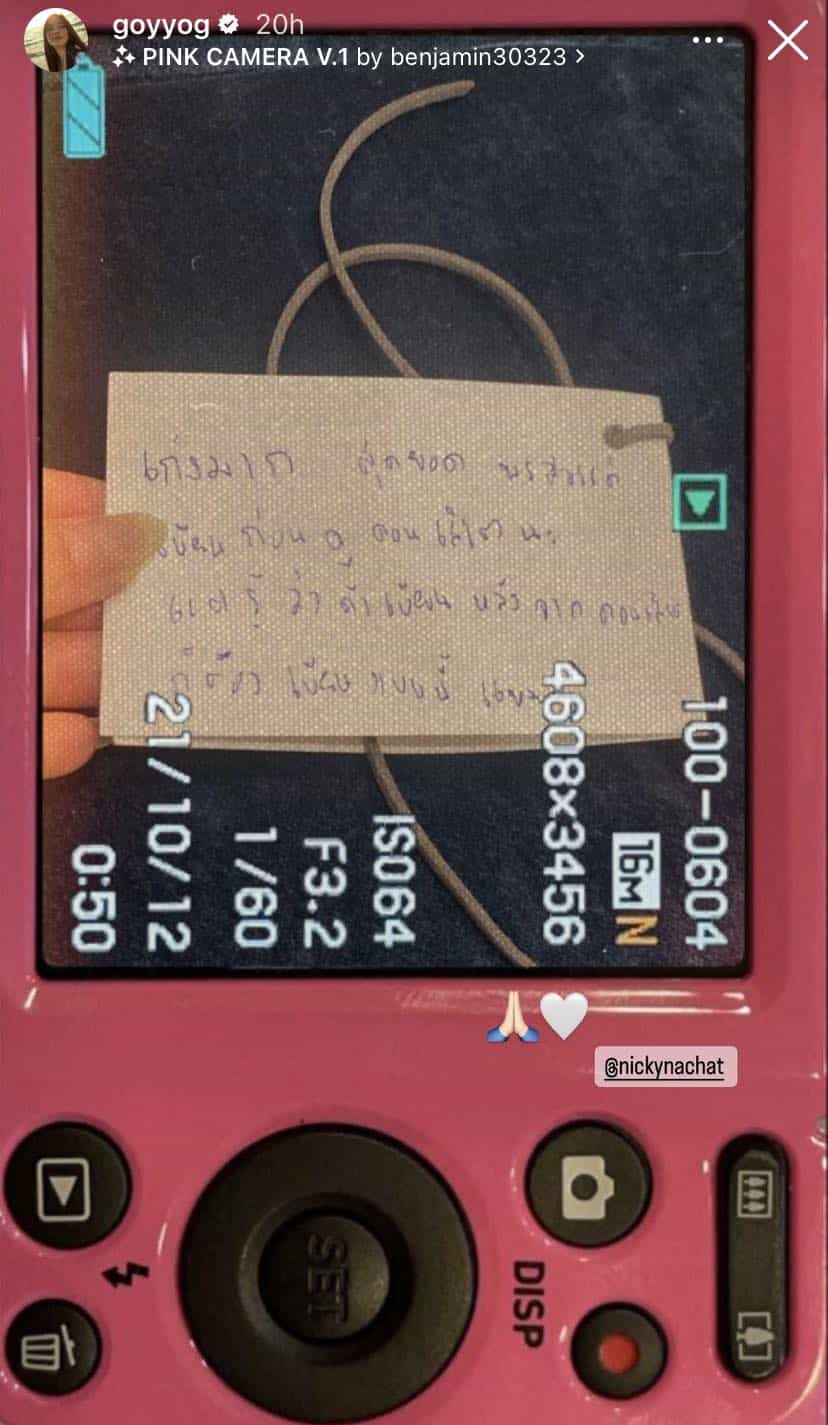 goyyog 20h
PINK CAMERA V.1 by benjamin30323 >
เก่งมาก สุดยอด พรสวรรค์
เขียน ก่อน ดู คอนเสิร์ต นะ
แต่ รู้ ว่า ถ้า เขียน หลัง จาก คอนเสิร์ต
ก็ ต้อง เขียน แบบนี้
100-0604
16M N
4608×3456
ISO64
F3.2
1/60
21/10/12
0:50
@nickynachat
SET
DISP